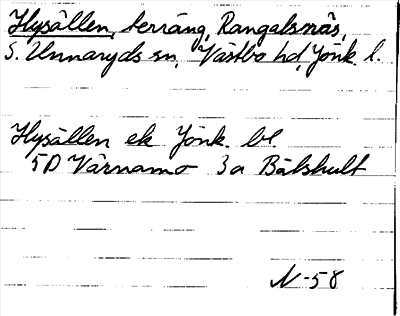 Hysällen, terräng, Rangalsnäs,
S. Unnaryds sn, Västbo hd, Jönk. l.
Hysällen ek Jönk. bl.
5D Värnamo 3a Bälshult
N-58